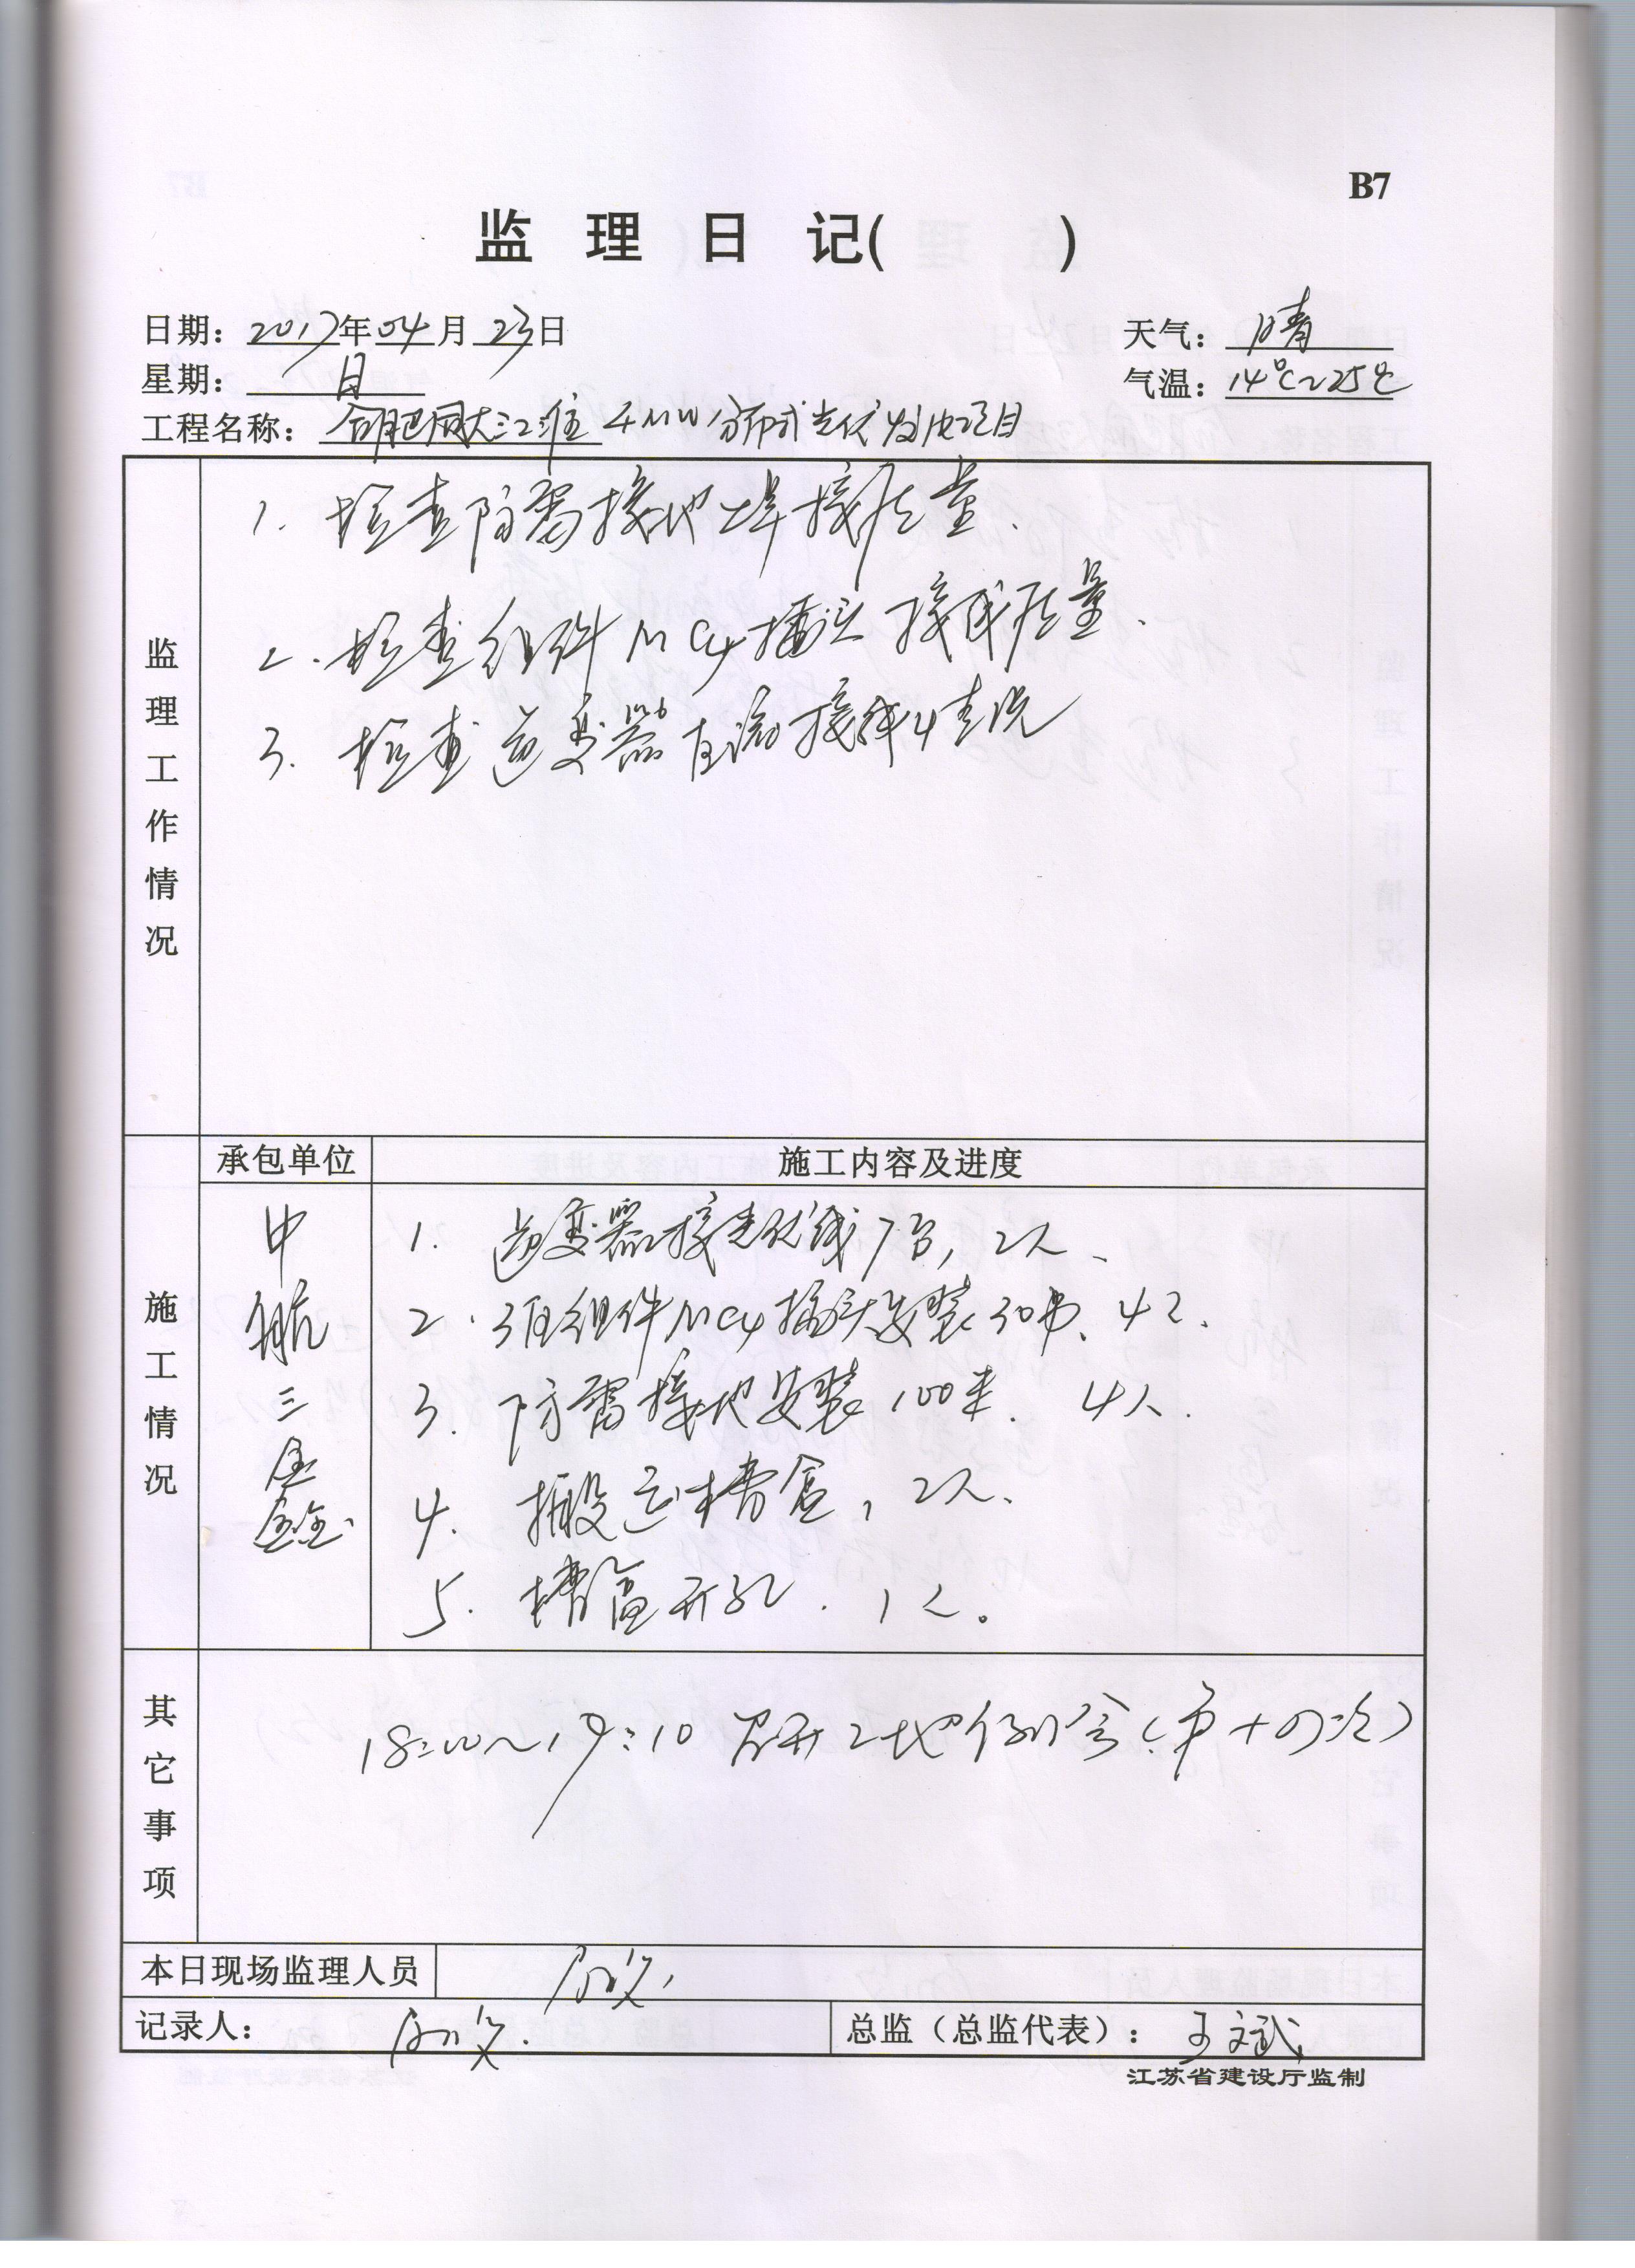 B7
监理日记(        )
日期：2017年04月23日
天气：晴
星期：日
气温：14℃~25℃
工程名称：合肥 大江淮4MW分布式光伏发电项目
监理工作情况
1. 检查防雷接地焊接质量、
2. 检查组件MC4插头接线质量、
3. 检查逆变器直流接线情况
施工情况
承包单位
施工内容及进度
中航三鑫
1. 逆变器接光伏线7台，2人、
2. 组件MC4插头安装30串、4人.
3. 防雷接地安装100米. 4人.
4. 搬运槽盒，2人、
5. 槽盒开孔. 1人。
其它事项
18:00~19:10 召开工地例会（第十四次）
本日现场监理人员
记录人：
总监（总监代表）：王文斌
江苏省建设厅监制